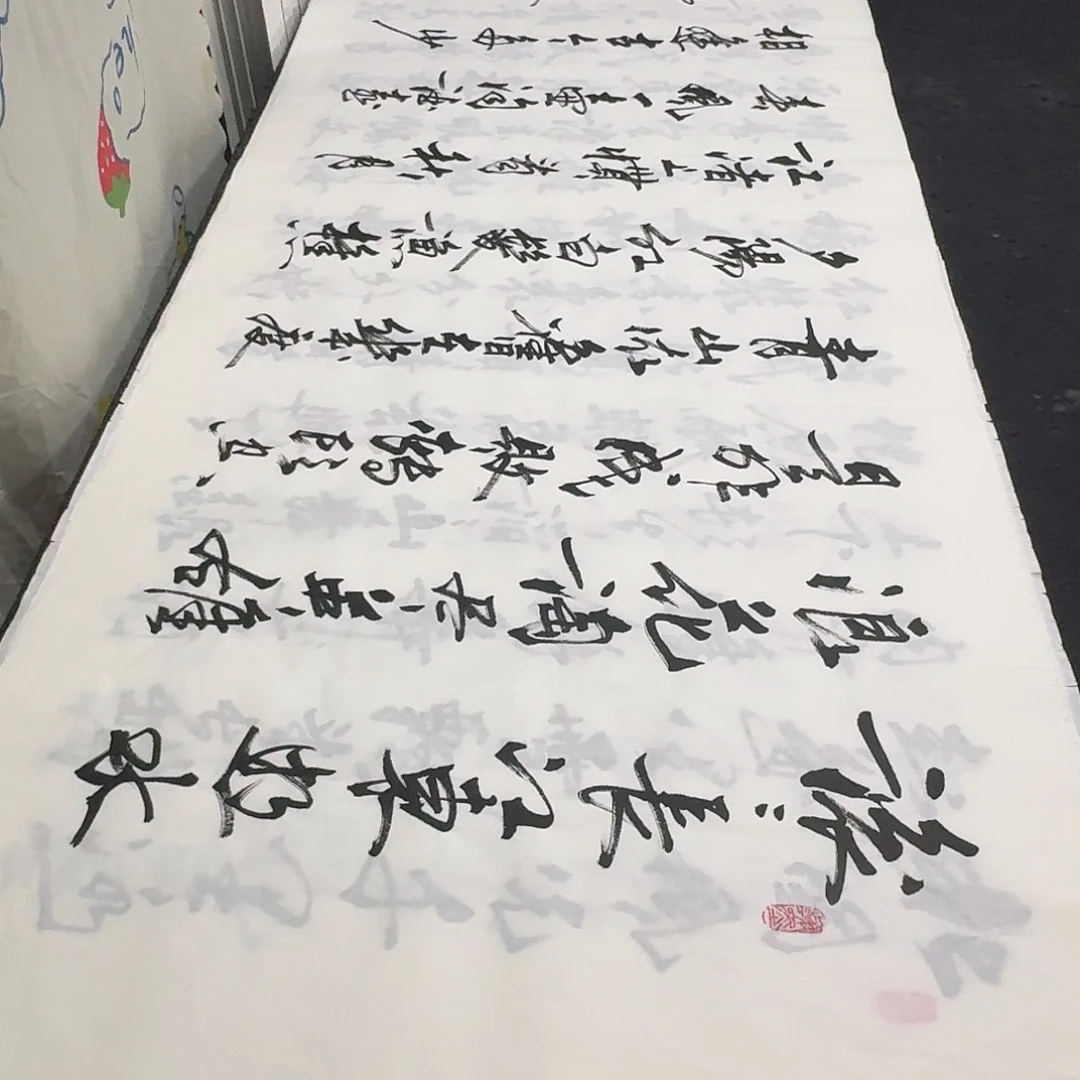 滾滾長江東逝水
浪花淘盡英雄
是非成敗轉頭空
青山依舊在幾度
夕陽紅白髮漁樵
江渚上慣看秋月
春風一壺濁酒喜
相逢古今多少